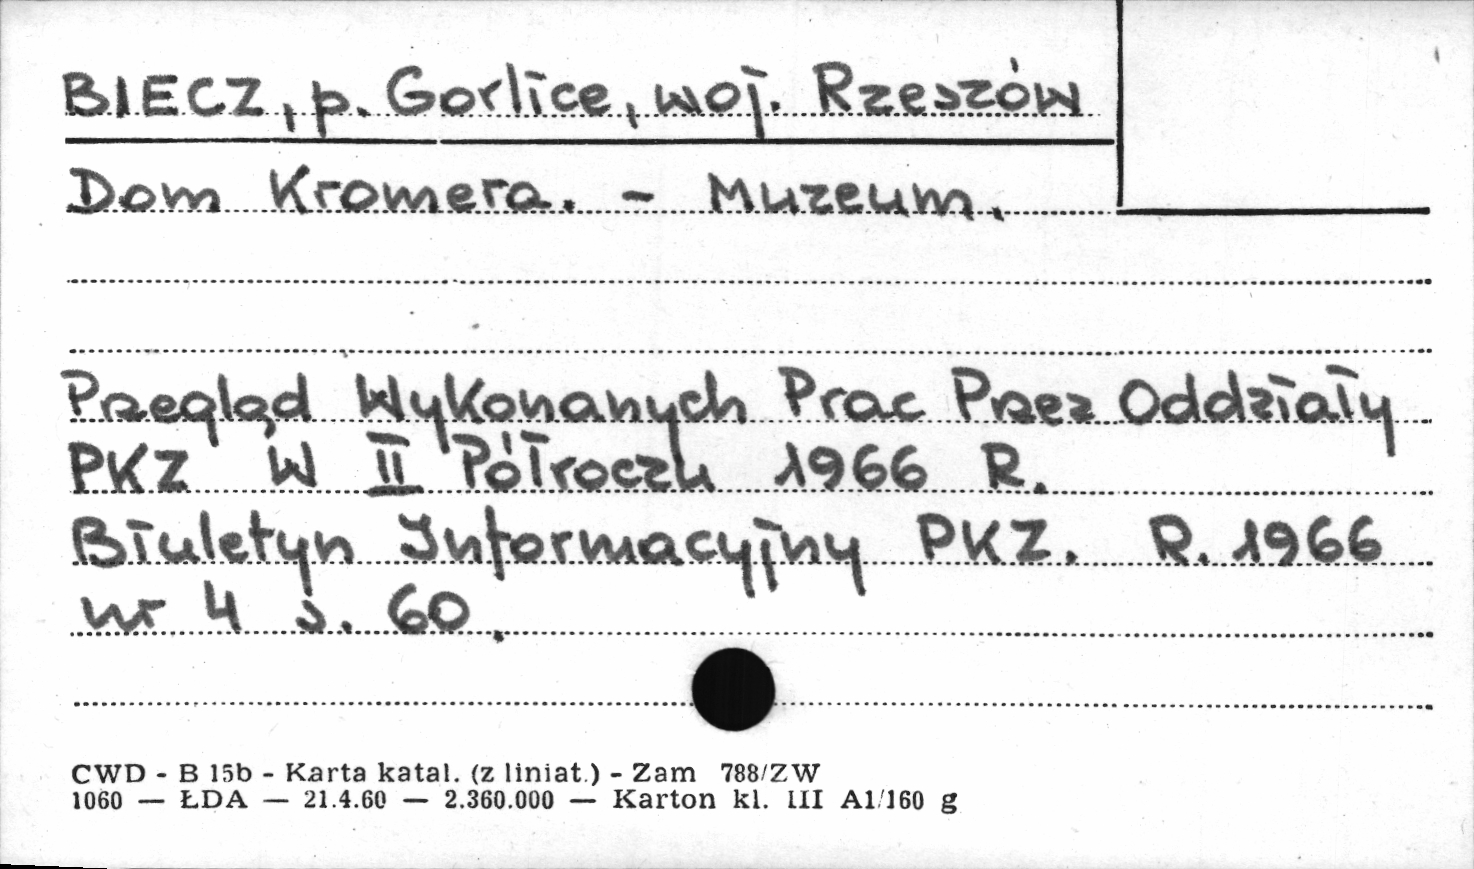 BIECZ, p. Gorlice, woj. Rzeszów
Dom Kromera. - Muzeum.
Przegląd Wykonanych Prac Przez Oddziały
PKZ W II Półroczu 1966 R.
Biuletyn Informacyjny PKZ. R. 1966
nr 4 s. 60.
CWD - B 15b - Karta katal. (z liniat.) - Zam 788/ZW
1060 — ŁDA — 21.4.60 — 2.360.000 — Karton kl. III A1/160 g